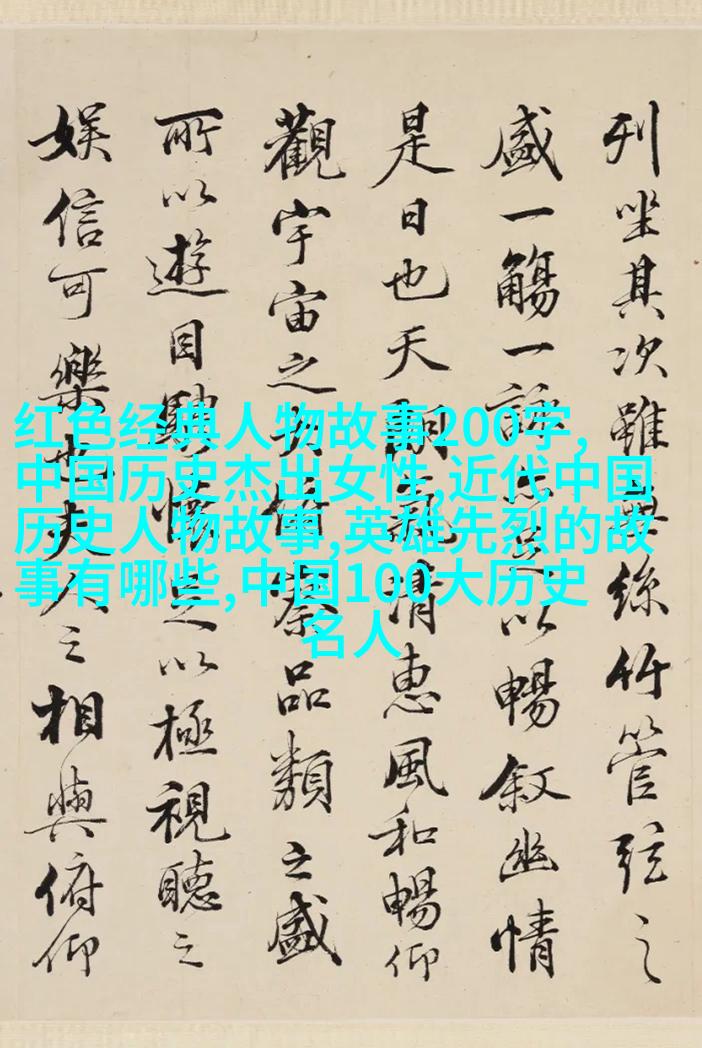 列坐其次雖無絲竹管弦之
盛一觴一詠亦足以暢叙幽情
是日也天朗氣清惠風和暢仰
觀宇宙之大俯察品類之盛
所以遊目騁懷足以極視聽之
娛信可樂也夫人之相與俯仰
红色经典人物故事200字,
中国历史杰出女性,近代中国
历史人物故事,英雄先烈的故
事有哪些,中国100大历史
名人